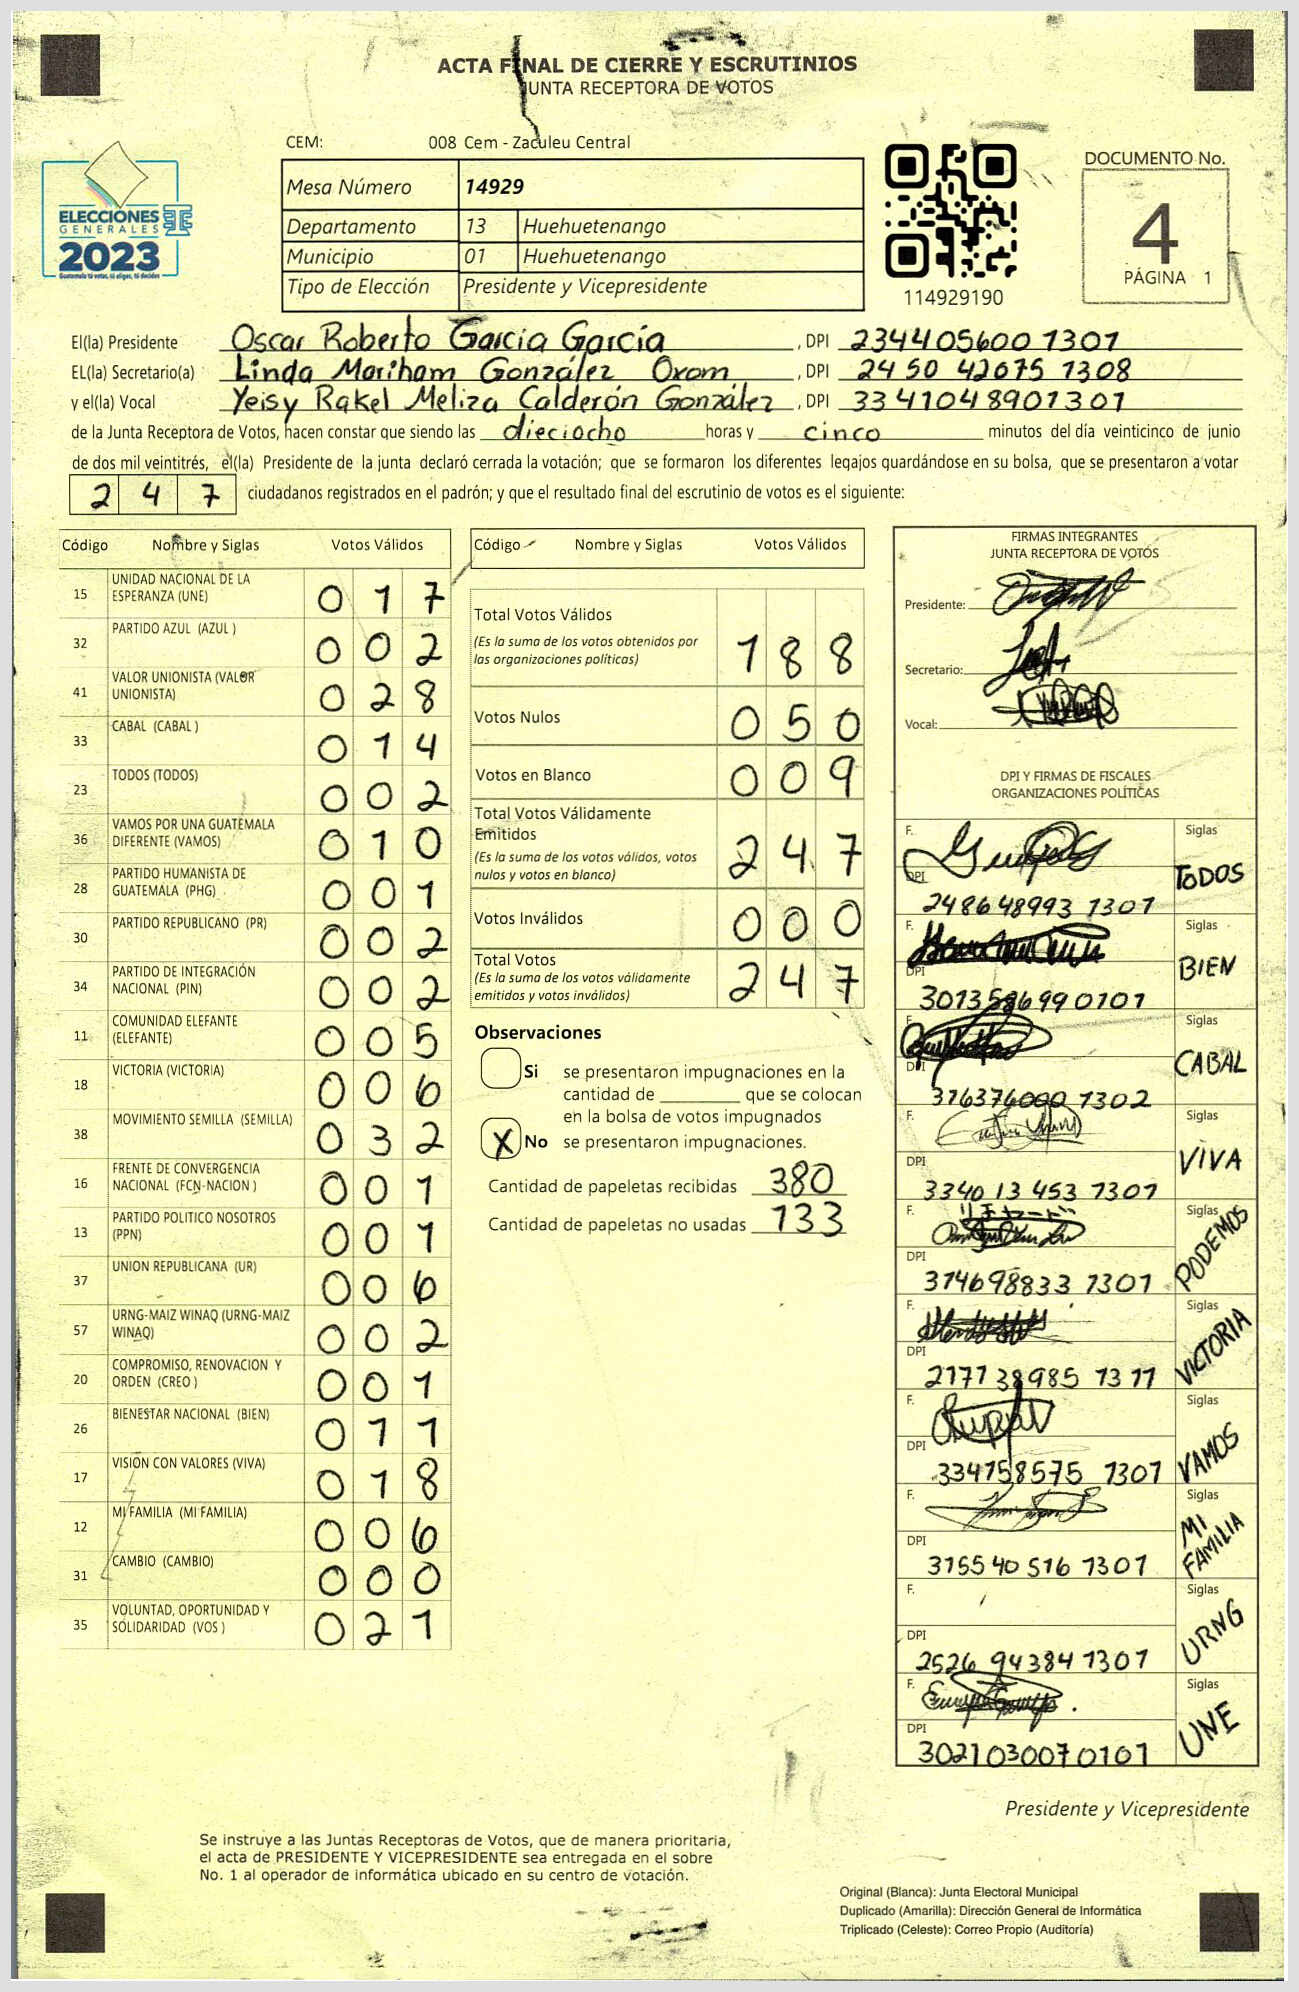 ACTA FINAL DE CIERRE Y ESCRUTINIOS
JUNTA RECEPTORA DE VOTOS
CEM: 008 Cem - Zaculeu Central
ELECCIONES
GENERALES
2023
Guatemala tú votas, tú eliges, tú decides
Mesa Número 14929
Departamento 13 Huehuetenango
Municipio 01 Huehuetenango
Tipo de Elección Presidente y Vicepresidente
114929190
DOCUMENTO No.
4
PÁGINA 1
El(la) Presidente Oscar Roberto Garcia García , DPI 234405600 1301
EL(la) Secretario(a) Linda Mariham González Oxom , DPI 2450 42075 1308
y el(la) Vocal Yeisy Rakel Meliza Calderón González , DPI 3341048901301
de la Junta Receptora de Votos, hacen constar que siendo las dieciocho horas y cinco minutos del día veinticinco de junio
de dos mil veintitrés, el(la) Presidente de la junta declaró cerrada la votación; que se formaron los diferentes legajos guardándose en su bolsa, que se presentaron a votar
2 4 7 ciudadanos registrados en el padrón; y que el resultado final del escrutinio de votos es el siguiente:
Código Nombre y Siglas Votos Válidos
15 UNIDAD NACIONAL DE LA ESPERANZA (UNE) 0 1 7
32 PARTIDO AZUL (AZUL ) 0 0 2
41 VALOR UNIONISTA (VALOR UNIONISTA) 0 2 8
33 CABAL (CABAL ) 0 1 4
23 TODOS (TODOS) 0 0 2
36 VAMOS POR UNA GUATEMALA DIFERENTE (VAMOS) 0 1 0
28 PARTIDO HUMANISTA DE GUATEMALA (PHG) 0 0 1
30 PARTIDO REPUBLICANO (PR) 0 0 2
34 PARTIDO DE INTEGRACIÓN NACIONAL (PIN) 0 0 2
11 COMUNIDAD ELEFANTE (ELEFANTE) 0 0 5
18 VICTORIA (VICTORIA) 0 0 6
38 MOVIMIENTO SEMILLA (SEMILLA) 0 3 2
16 FRENTE DE CONVERGENCIA NACIONAL (FCN-NACION ) 0 0 1
13 PARTIDO POLITICO NOSOTROS (PPN) 0 0 1
37 UNION REPUBLICANA (UR) 0 0 6
57 URNG-MAIZ WINAQ (URNG-MAIZ WINAQ) 0 0 2
20 COMPROMISO, RENOVACION Y ORDEN (CREO ) 0 0 1
26 BIENESTAR NACIONAL (BIEN) 0 1 1
17 VISION CON VALORES (VIVA) 0 1 8
12 MI FAMILIA (MI FAMILIA) 0 0 6
31 CAMBIO (CAMBIO) 0 0 0
35 VOLUNTAD, OPORTUNIDAD Y SOLIDARIDAD (VOS ) 0 2 1
Código Nombre y Siglas Votos Válidos
Total Votos Válidos
(Es la suma de los votos obtenidos por
las organizaciones políticas) 1 8 8
Votos Nulos 0 5 0
Votos en Blanco 0 0 9
Total Votos Válidamente
Emitidos
(Es la suma de los votos válidos, votos
nulos y votos en blanco) 2 4 7
Votos Inválidos 0 0 0
Total Votos
(Es la suma de los votos válidamente
emitidos y votos inválidos) 2 4 7
Observaciones
Si se presentaron impugnaciones en la
cantidad de ________ que se colocan
en la bolsa de votos impugnados
X No se presentaron impugnaciones.
Cantidad de papeletas recibidas 380
Cantidad de papeletas no usadas 133
FIRMAS INTEGRANTES
JUNTA RECEPTORA DE VOTOS
Presidente:
Secretario:
Vocal:
DPI Y FIRMAS DE FISCALES
ORGANIZACIONES POLÍTICAS
F. Siglas
DPI 248648993 1301 TODOS
F. Siglas
DPI 3013586990101 BIEN
F. Siglas
DPI 316376000 1302 CABAL
F. Siglas
DPI 3340 13 453 1301 VIVA
F. リチャード Siglas
DPI 314698833 1301 PODEMOS
F. Siglas
DPI 2177 38985 1311 VICTORIA
F. Siglas
DPI 334158575 1301 VAMOS
F. Siglas
DPI 315540 516 1301 MI FAMILIA
F. Siglas
DPI 2526 94384 1301 URNG
F. Siglas
DPI 3021030070101 UNE
Presidente y Vicepresidente
Se instruye a las Juntas Receptoras de Votos, que de manera prioritaria,
el acta de PRESIDENTE Y VICEPRESIDENTE sea entregada en el sobre
No. 1 al operador de informática ubicado en su centro de votación.
Original (Blanca): Junta Electoral Municipal
Duplicado (Amarilla): Dirección General de Informática
Triplicado (Celeste): Correo Propio (Auditoría)